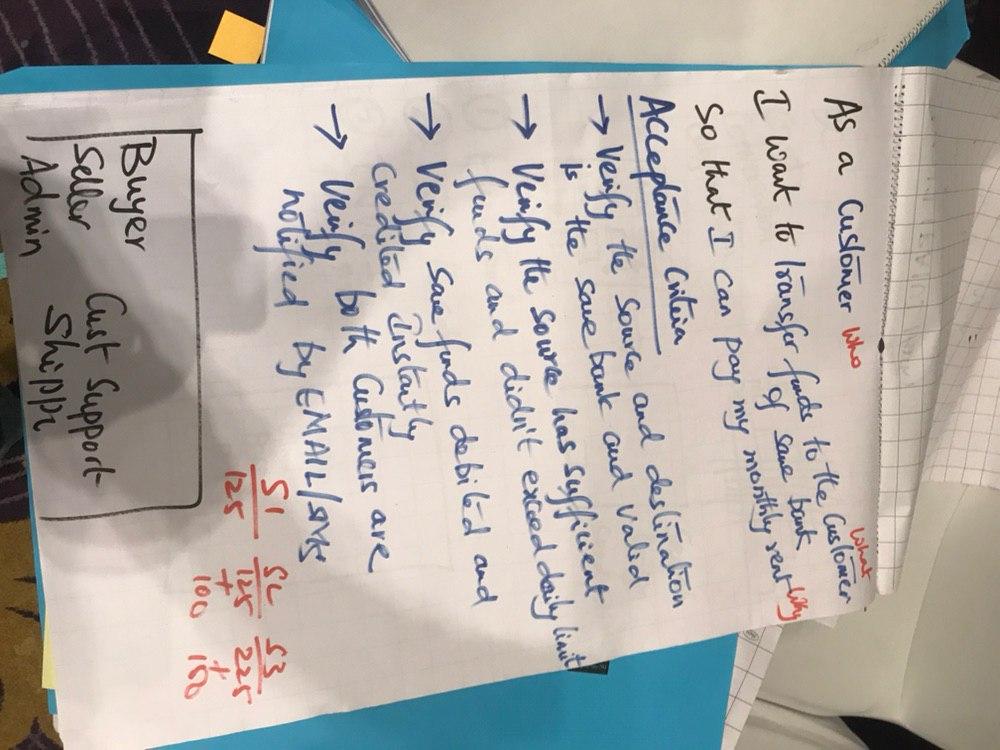 As a Customer who
I want to transfer funds to the Customer What
of same bank
So that I can pay my monthly rent Why
Acceptance Criteria
→ Verify the source and destination
is the same bank and valid
→ Verify the source has sufficient
funds and didn't exceed daily limit
→ Verify same funds debited and
credited Instantly
→ Verify both Customers are
notified by EMAIL/SMS
S1 S2 S3
125 125 225
+ +
100 100
Buyer Cust Support
Seller Shippr
Admin